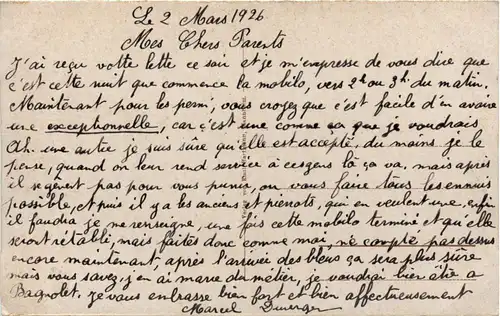 Le 2 Mars 1926
Mes Chers Parents
J'ai reçu votte lette ce soir et je m'empresse de vous dire que
c'est cette nuit que commence la mobilo, vers 2h ou 3h du matin.
Maintenant pour les permi, vous croyez que c'est facile d'en avoire
une exceptionnelle, car c'est une comme ça que je voudrais
Ah. une autre je suis sûre qu'elle est accepté, du moins je le
pense, quand on leur rend service à ces gens là ça va, mais après
il se gènent pas pour vous punir, ou vous faire tous les ennuis
possible, et puis il y a les anciens et pierrots, qui en veulent une, enfin
il faudra je me renseigne, une fois cette mobilo terminé et qu'elle
seront rétabli, mais faites donc comme moi, ne compté pas dessus
encore maintenant, après l'arrivée des bleus ça sera plus sûre
mais vous savez, j'en ai marre du métier, je voudrai bien être a
Bagnolet. je vous embrasse bien fort et bien affectueusement
Marcel